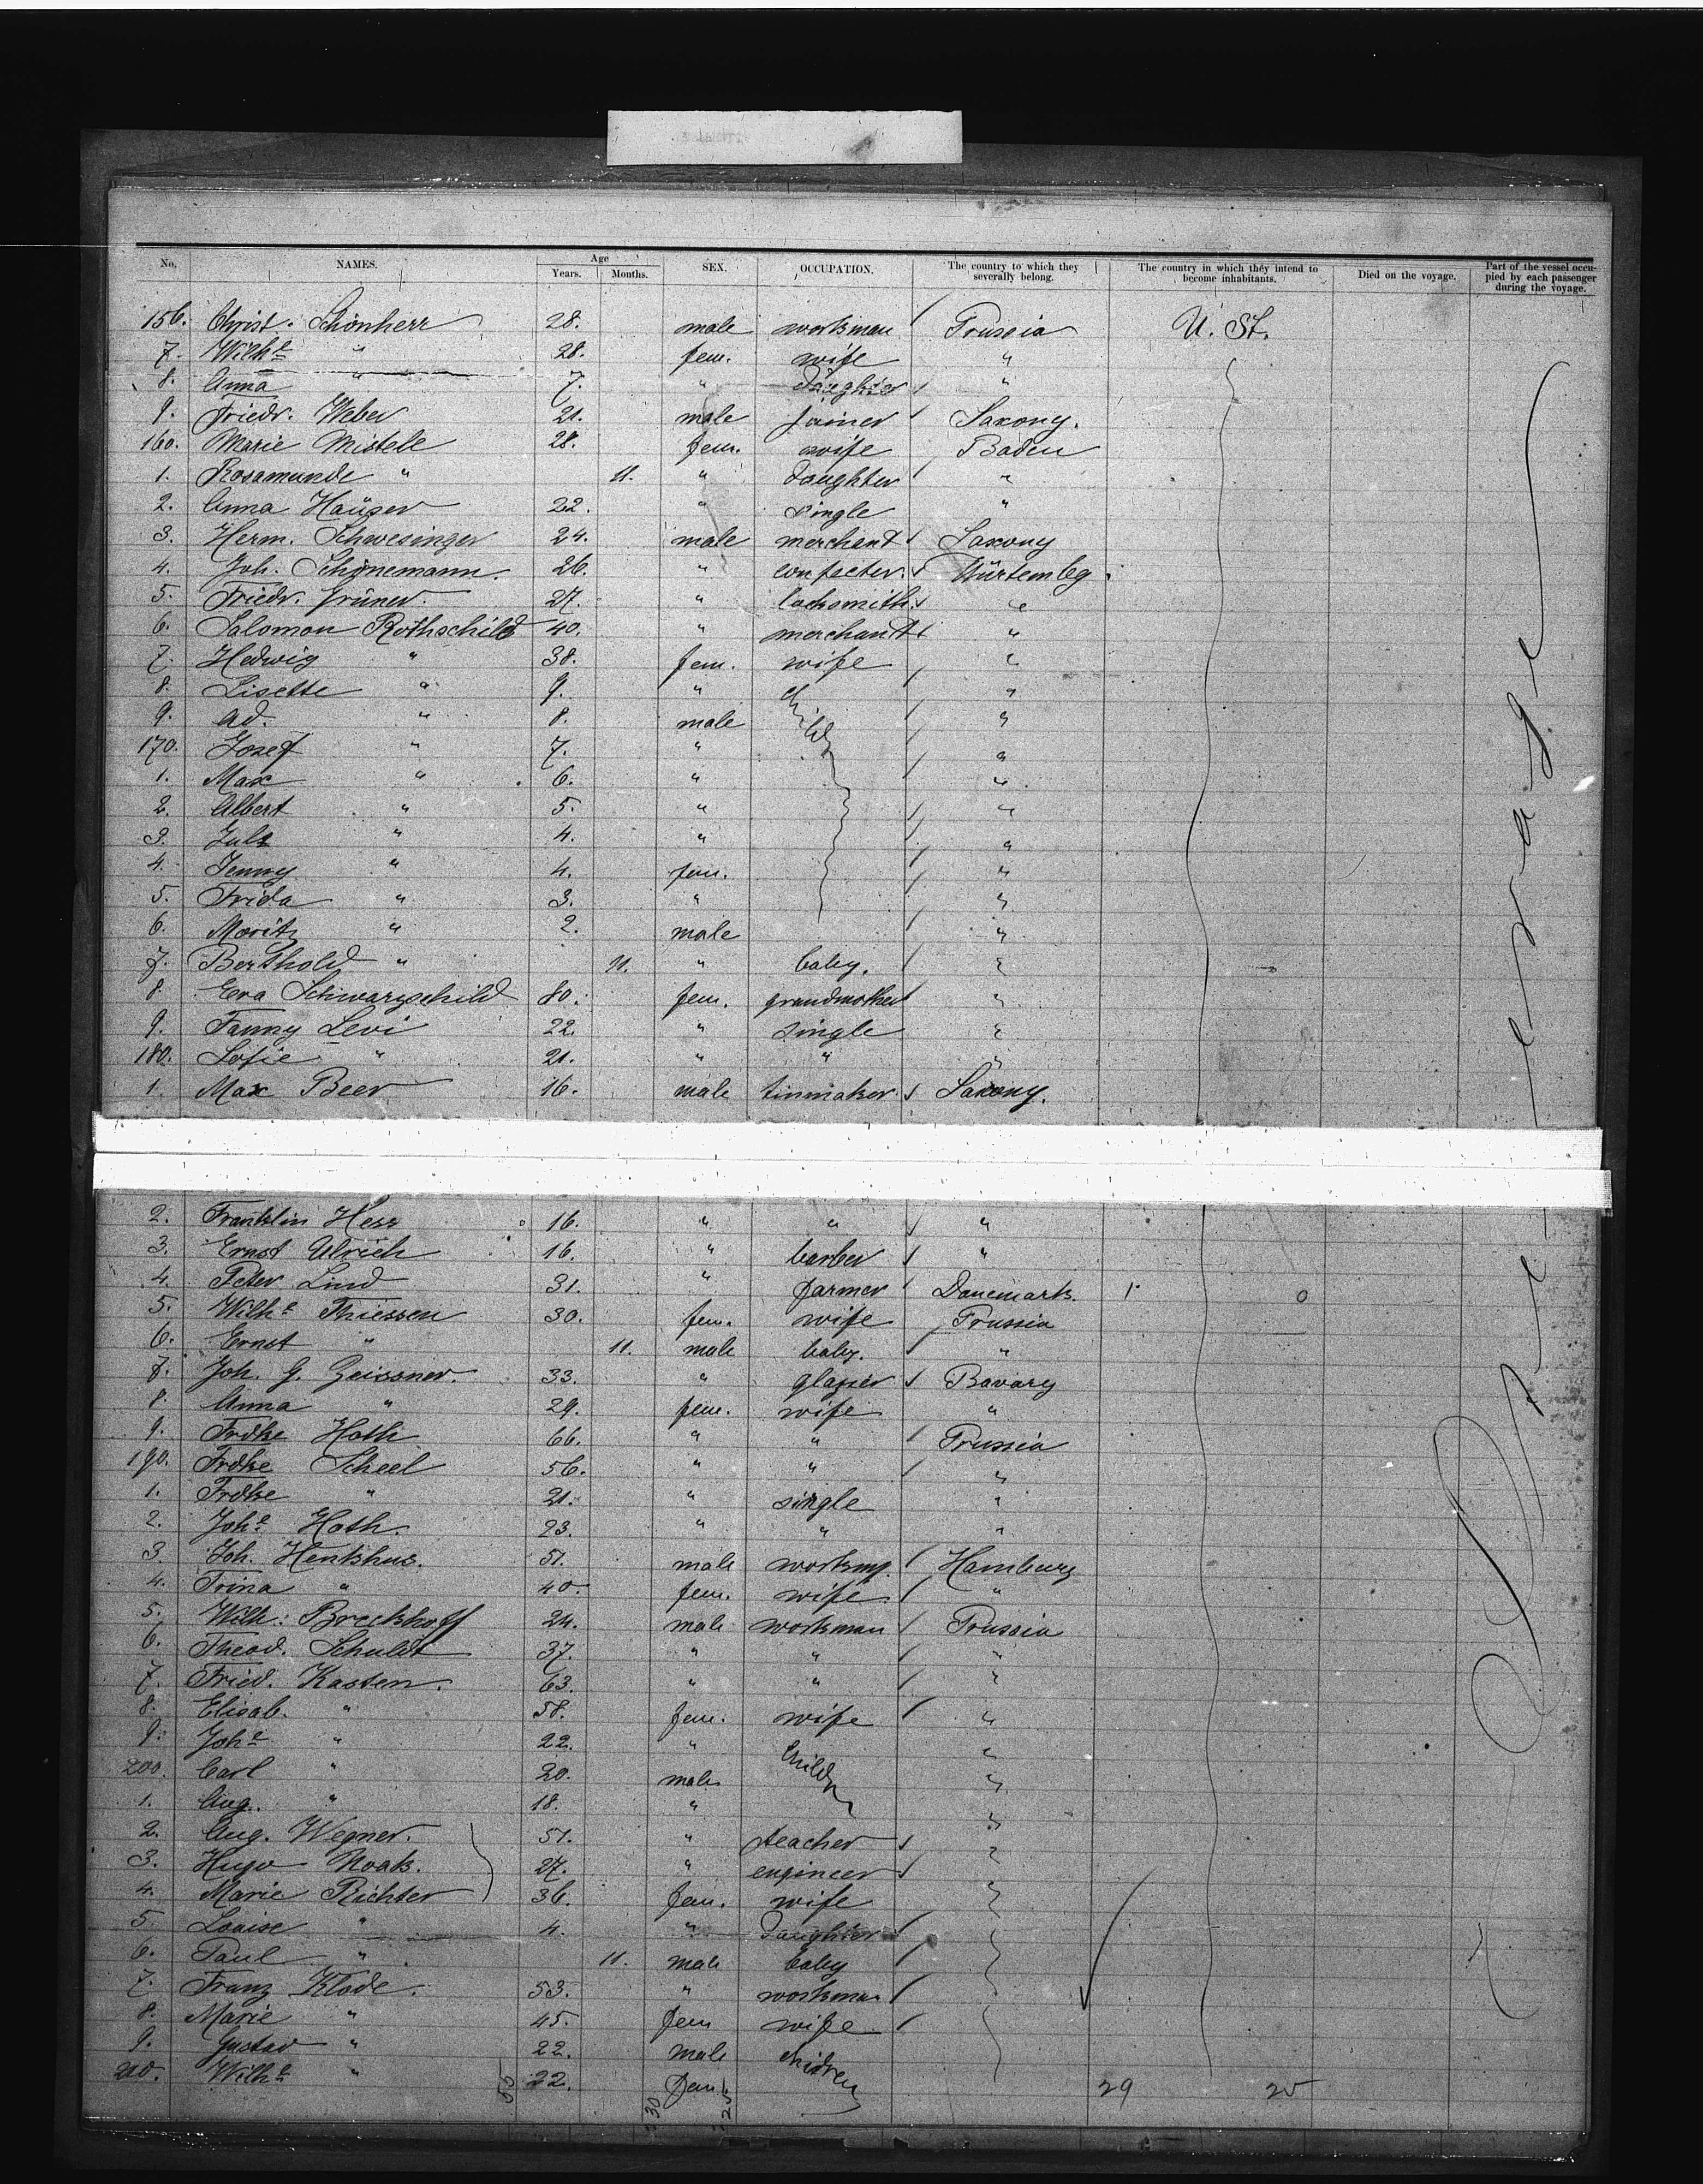 No. NAMES. Age Years. Months. SEX. OCCUPATION. The country to which they severally belong. The country in which they intend to become inhabitants. Died on the voyage. Part of the vessel occupied by each passenger during the voyage.
156. Christ. Schönherr 28. male workman Prussia U. St.
7. Wilhe " 28. fem. wife "
8. Anna " 7. " Daughter "
9. Friedr. Weber 21. male joiner Saxony.
160. Marie Mistele 28. fem. wife Baden
1. Rosamunde " 11. " Daughter "
2. Anna Häuser 22. " single "
3. Herm. Schwesinger 24. male merchant Saxony
4. Joh. Schönemann. 26. " confecter. Würtembg.
5. Friedr. Grüner. 27. " locksmith. "
6. Salomon Rothschild 40. " merchant "
7. Hedwig " 38. fem. wife "
8. Lisette " 9. " child "
9. Ad. " 8. male "
170. Josef " 7. " "
1. Max " 6. " "
2. Albert " 5. " "
3. Juls " 4. " "
4. Jenny " 4. fem. "
5. Frida " 3. " "
6. Moritz " 2. male "
7. Berthold " 11. " baby. "
8. Eva Schwarzschild 80. fem. grandmother "
9. Fanny Levi 22. " single "
180. Sofie " 21. " " "
1. Max Beer 16. male tinmaker Saxony.
2. Franklin Hess 16. " " "
3. Ernst Ulrich 16. " barber "
4. Peter Lind 31. " farmer Danemark.
5. Wilhe Thiessen 30. fem. wife Prussia
6. Ernst " 11. male baby. "
7. Joh. G. Geissner. 33. " glazier Bavary
8. Anna " 29. fem. wife "
9. Frdke Hoth 66. " " Prussia
190. Frdke Scheel 56. " " "
1. Frdke " 21. " single "
2. Johe Hoth. 23. " " "
3. Joh. Henkhus. 51. male workmn. Hamburg
4. Trina " 40. fem. wife "
5. Wilh. Breckhoff 24. male workman Prussia
6. Theod. Schuldt 37. " " "
7. Fried. Kasten. 63. " " "
8. Elisab. " 58. fem. wife "
9. Johe " 22. " child "
200. Carl " 20. male "
1. Aug. " 18. " "
2. Aug. Wegner. 51. " teacher "
3. Hugo Noak. 27. " engineer "
4. Marie Richter 36. fem. wife "
5. Louise " 4. " Daughter
6. Paul " 11. male baby
7. Franz Klode. 53. " workman
8. Marie " 45. fem wife
9. Gustav " 22. male children
210. Wilhe " 22. fem. 29 25
55 30 25